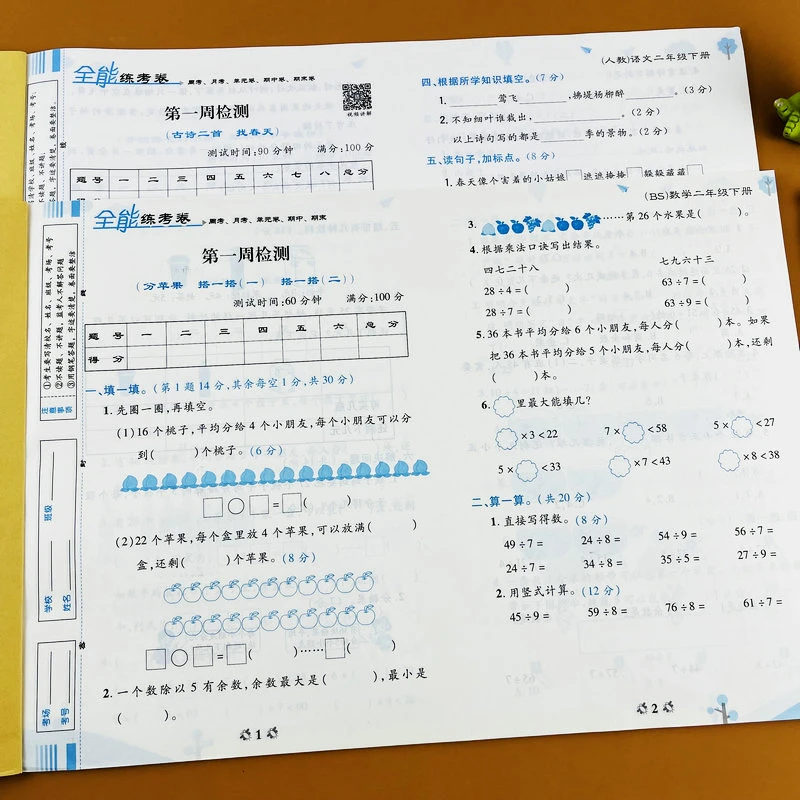 全能练考卷 周考、月考、单元卷、期中卷、期末卷
第一周检测
(古诗二首 找春天)
测试时间:90分钟 满分:100分
视频讲解
题号 一 二 三 四 五 六 七 八 总分
(人教)语文二年级下册
四、根据所学知识填空。(7分)
1. 莺飞 ,拂堤杨柳醉 。(3分)
2.不知细叶谁裁出, 。(2分)
以上诗句写的都是 季的景物。(2分)
五、读句子,加标点。(8分)
1.春天像个害羞的小姑娘□遮遮掩掩□躲躲藏藏□
全能练考卷 周考、月考、单元卷、期中、期末
第一周检测
(分苹果 搭一搭(一) 搭一搭(二))
测试时间:60分钟 满分:100分
题号 一 二 三 四 五 六 总分
得分
一、填一填。(第1题14分,其余每空1分,共30分)
1.先圈一圈,再填空。
(1)16个桃子,平均分给4个小朋友,每个小朋友可以分
到( )个桃子。(6分)
□○□=□( )
(2)22个苹果,每个盒里放4个苹果,可以放满( )
盒,还剩( )个苹果。(8分)
□○□=□( )……□( )
2.一个数除以5有余数,余数最大是( ),最小是
( )。
1
(BS)数学二年级下册
3. ……第26个水果是( )。
4.根据乘法口诀写出结果。
四七二十八 七九六十三
28÷4=( ) 63÷7=( )
28÷7=( ) 63÷9=( )
5.36本书平均分给6个小朋友,每人分( )本。如果
把36本书平均分给5个小朋友,每人分( )本,还剩
( )本。
6. 里最大能填几?
×3<22 7× <58 5× <27
5× <33 ×7<43 ×8<38
二、算一算。(共20分)
1.直接写得数。(8分)
49÷7= 24÷8= 54÷9= 56÷7=
24÷7= 34÷8= 35÷5= 27÷9=
2.用竖式计算。(12分)
45÷9= 59÷8= 76÷8= 61÷7=
2
注意事项
①考生要写清校名、姓名、班级、考场、考号
②不读题、不讲题,监考人不解答问题
③用钢笔答题,字迹要清楚,卷面要整洁
班级
学校
姓名
考场
考号
线
封
密